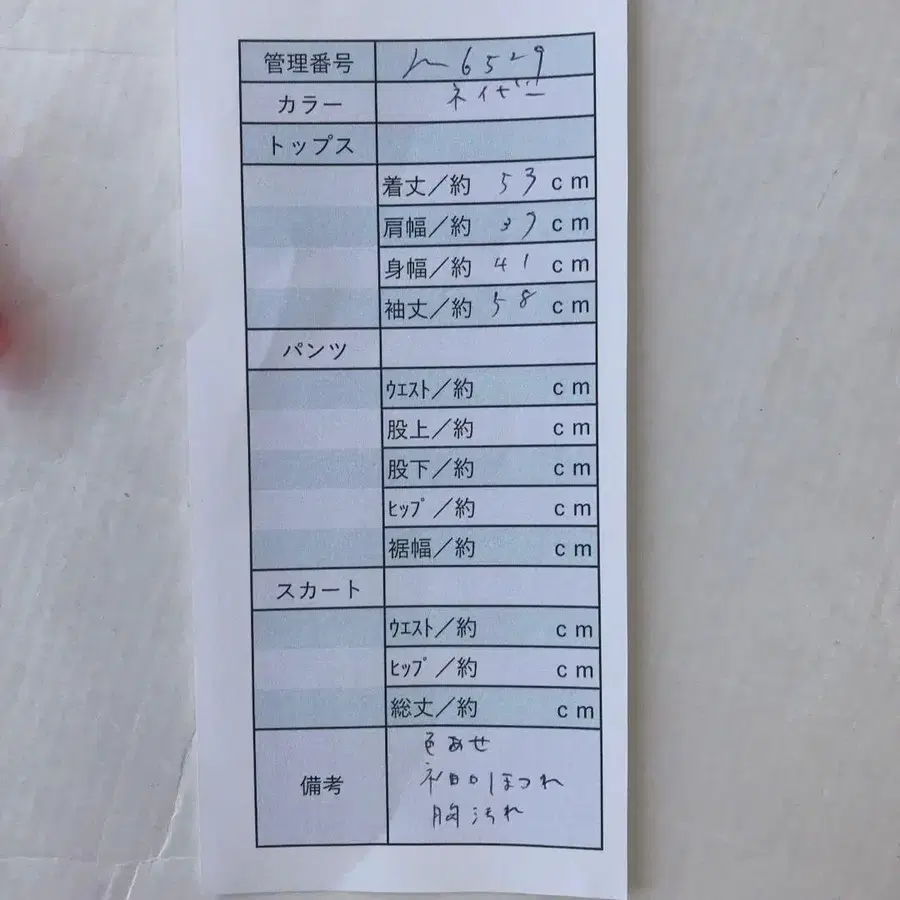 管理番号 6529
カラー ネイビー
トップス
着丈／約 53 cm
肩幅／約 37 cm
身幅／約 41 cm
袖丈／約 58 cm
パンツ
ｳｴｽﾄ／約 cm
股上／約 cm
股下／約 cm
ﾋｯﾌﾟ／約 cm
裾幅／約 cm
スカート
ｳｴｽﾄ／約 cm
ﾋｯﾌﾟ／約 cm
総丈／約 cm
備考
色あせ
袖口ほつれ
胸汚れ